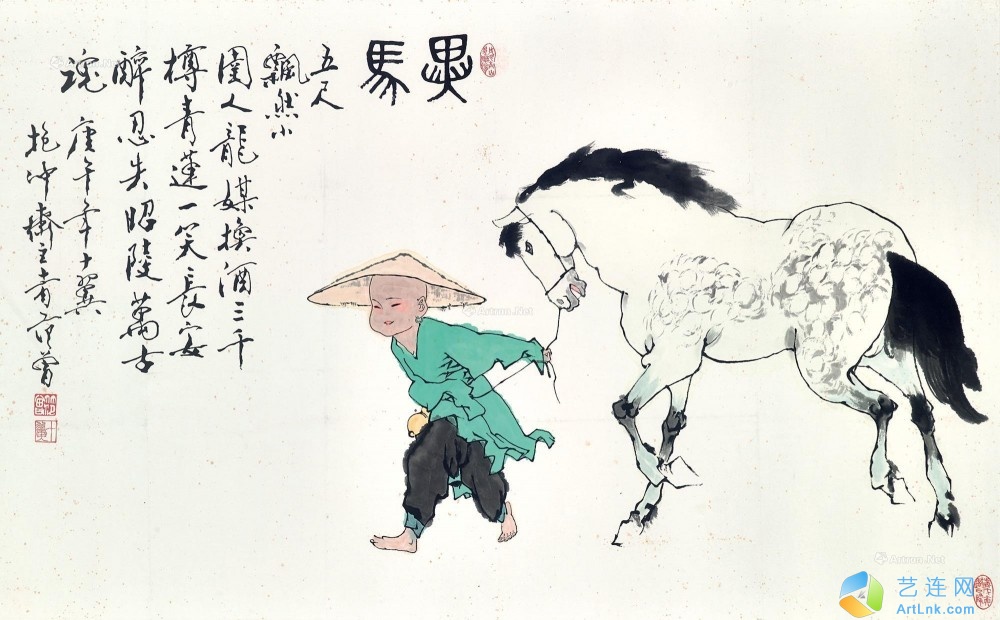 馬
五尺
飄然小
圉人龍媒換酒三千
樽青蓮一笑長安
醉忍失昭陵萬古
魂 庚午年十翼
抱冲齋主 范曾
Artron.Net
Artron.Net
艺连网
ArtLnk.com